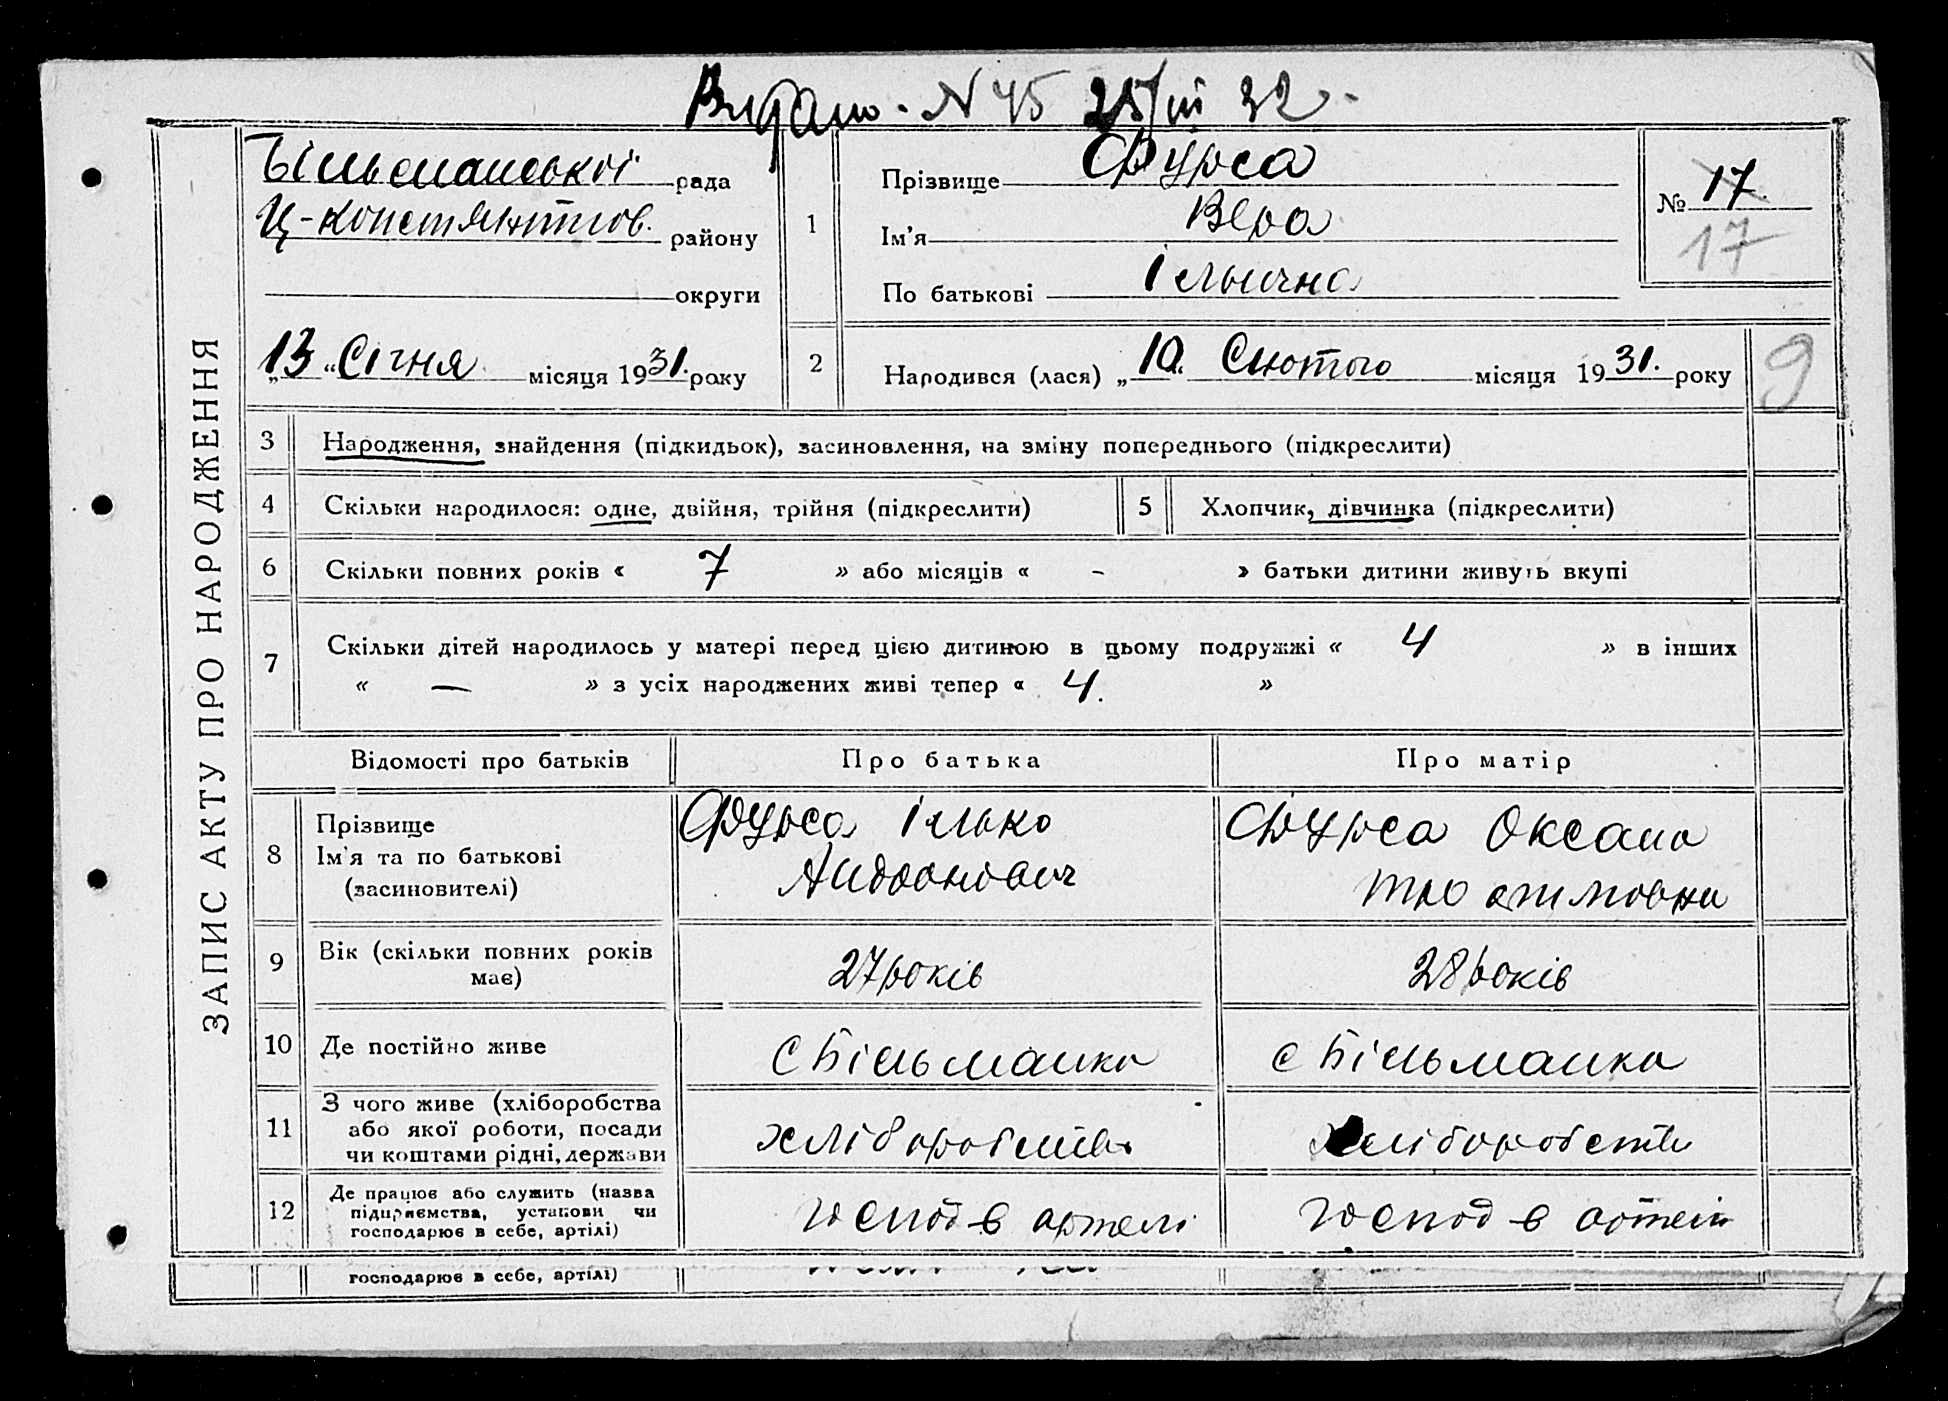 Видано. N 45 25/III 32
ЗАПИС АКТУ ПРО НАРОДЖЕННЯ
Більманської рада
Ц-Констянтинов. району
округи
„13“ Січня місяця 1931. року
1
Прізвище Фурса
Ім'я Вера
По батькові Ільична
№ 17
17
2
Народився (лася) „10“ Лютого місяця 1931. року
9
3 Народження, знайдення (підкидьок), засиновлення, на зміну попереднього (підкреслити)
4 Скільки народилося: одне, двійня, трійня (підкреслити)
5 Хлопчик, дівчинка (підкреслити)
6 Скільки повних років « 7 » або місяців « - » батьки дитини живуть вкупі
7 Скільки дітей народилось у матері перед цією дитиною в цьому подружжі « 4 » в інших
« — » з усіх народжених живі тепер « 4. »
Відомості про батьків Про батька Про матір
8 Прізвище
Ім'я та по батькові
(засиновителі)
Фурса Ілько
Фурса Оксана
9 Вік (скільки повних років
має)
27 років
28 років
10 Де постійно живе
с Більманка
с Більманка
11 З чого живе (хліборобства
або якої роботи, посади
чи коштами рідні, держави
хліборобств
хліборобств
12 Де працює або служить (назва
підприємства, установи чи
господарює в себе, артілі)
господ в артелі
господ в артелі
господарює в себе, артілі)